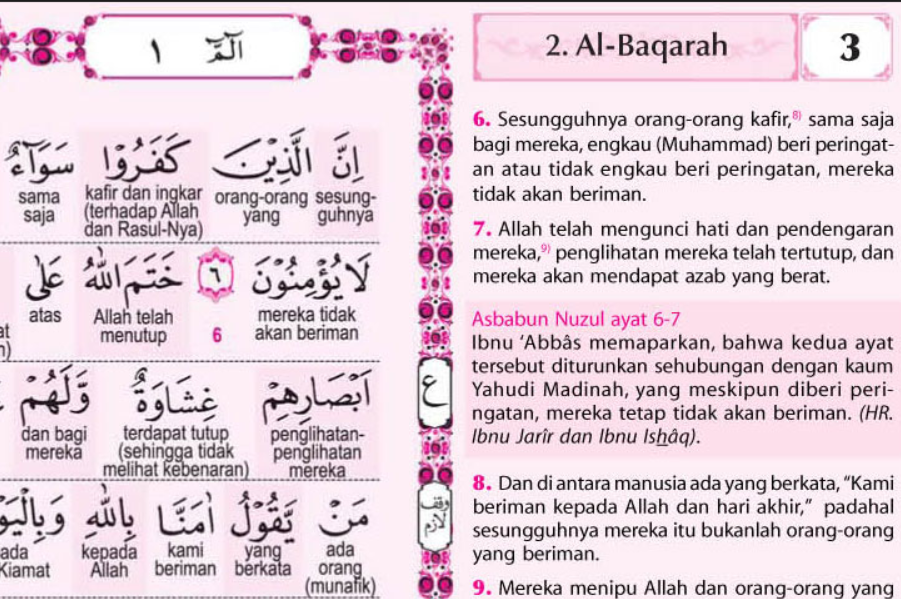 الٓمّٓ ١
2. Al-Baqarah 3
اِنَّ الَّذِيْنَ كَفَرُوْا سَوَآءٌ
sesung-
guhnya
orang-orang
yang
kafir dan ingkar
(terhadap Allah
dan Rasul-Nya)
sama
saja
لَا يُؤْمِنُوْنَ ٦ خَتَمَ اللّٰهُ عَلٰى
mereka tidak
akan beriman
6
Allah telah
menutup
atas
اَبْصَارِهِمْ غِشَاوَةٌ وَّلَهُمْ
penglihatan-
penglihatan
mereka
terdapat tutup
(sehingga tidak
melihat kebenaran)
dan bagi
mereka
مَنْ يَّقُوْلُ اٰمَنَّا بِاللّٰهِ
ada
orang
(munafik)
yang
berkata
kami
beriman
kepada
Allah
Kiamat
ع
وقف
لازم
6. Sesungguhnya orang-orang kafir,⁸⁾ sama saja
bagi mereka, engkau (Muhammad) beri peringat-
an atau tidak engkau beri peringatan, mereka
tidak akan beriman.
7. Allah telah mengunci hati dan pendengaran
mereka,⁹⁾ penglihatan mereka telah tertutup, dan
mereka akan mendapat azab yang berat.
Asbabun Nuzul ayat 6-7
Ibnu ‘Abbâs memaparkan, bahwa kedua ayat
tersebut diturunkan sehubungan dengan kaum
Yahudi Madinah, yang meskipun diberi peri-
ngatan, mereka tetap tidak akan beriman. (HR.
Ibnu Jarîr dan Ibnu Ishâq).
8. Dan di antara manusia ada yang berkata, “Kami
beriman kepada Allah dan hari akhir,” padahal
sesungguhnya mereka itu bukanlah orang-orang
yang beriman.
9. Mereka menipu Allah dan orang-orang yang